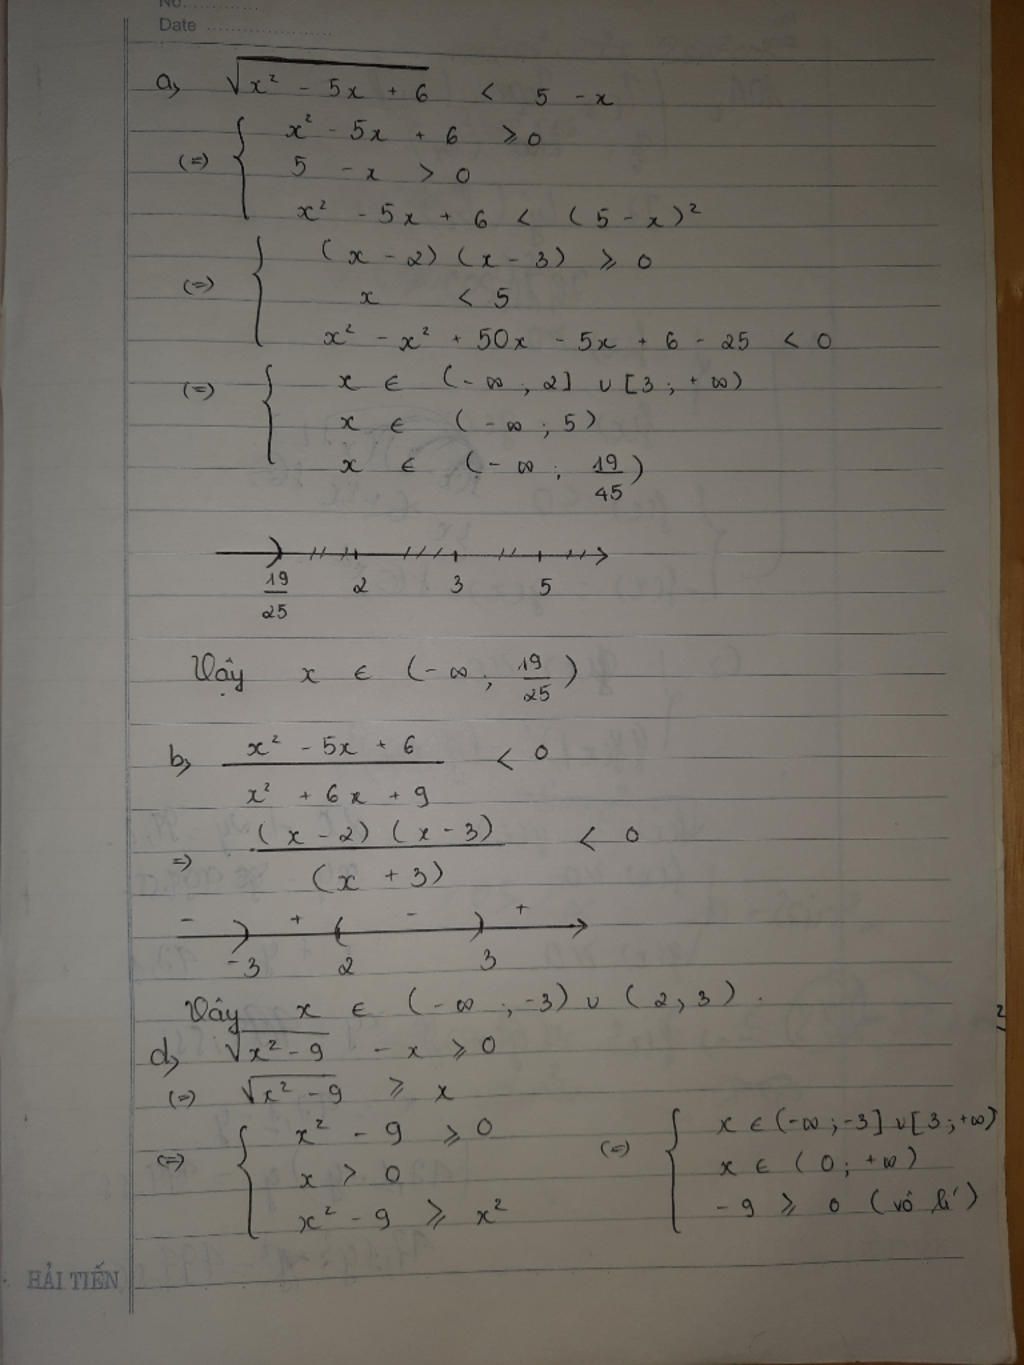 No. ............
Date ......................
a) √(x² - 5x + 6) < 5 - x
(=) { x² - 5x + 6 ⩾ 0
5 - x > 0
x² - 5x + 6 < (5 - x)²
(=) { (x - 2) (x - 3) ⩾ 0
x < 5
x² - x² + 50x - 5x + 6 - 25 < 0
(=) { x ∈ (-∞, 2] ∪ [3; +∞)
x ∈ (-∞; 5)
x ∈ (-∞; 19/45)
19/25 2 3 5
Vậy x ∈ (-∞; 19/25)
b) (x² - 5x + 6)/(x² + 6x + 9) < 0
=) ((x - 2) (x - 3))/((x + 3)) < 0
- + - +
-3 2 3
Vây x ∈ (-∞; -3) ∪ (2; 3).
d) √(x² - 9) - x ⩾ 0
(=) √(x² - 9) ⩾ x
(=) { x² - 9 ⩾ 0 (=) { x ∈ (-∞; -3] ∪ [3; +∞)
x > 0 x ∈ (0; +∞)
x² - 9 ⩾ x² -9 ⩾ 0 (vô lí)
HẢI TIẾN